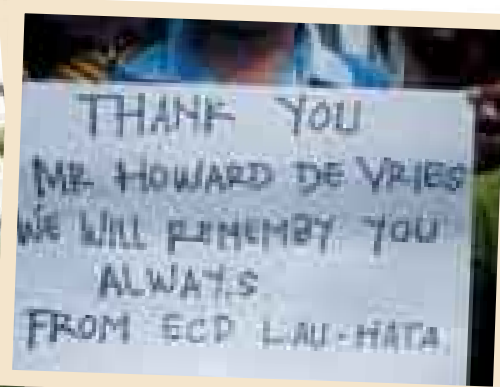 THANK YOU
MR HOWARD DE VRIES
WE WILL REMEMBY YOU
ALWAYS
FROM ECD LAU-HATA.